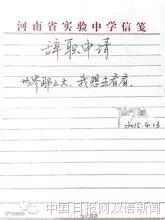 河南省实验中学信笺
辞职申请
世界那么大，我想去看看。
2015.4.13
中国日报网双语新闻